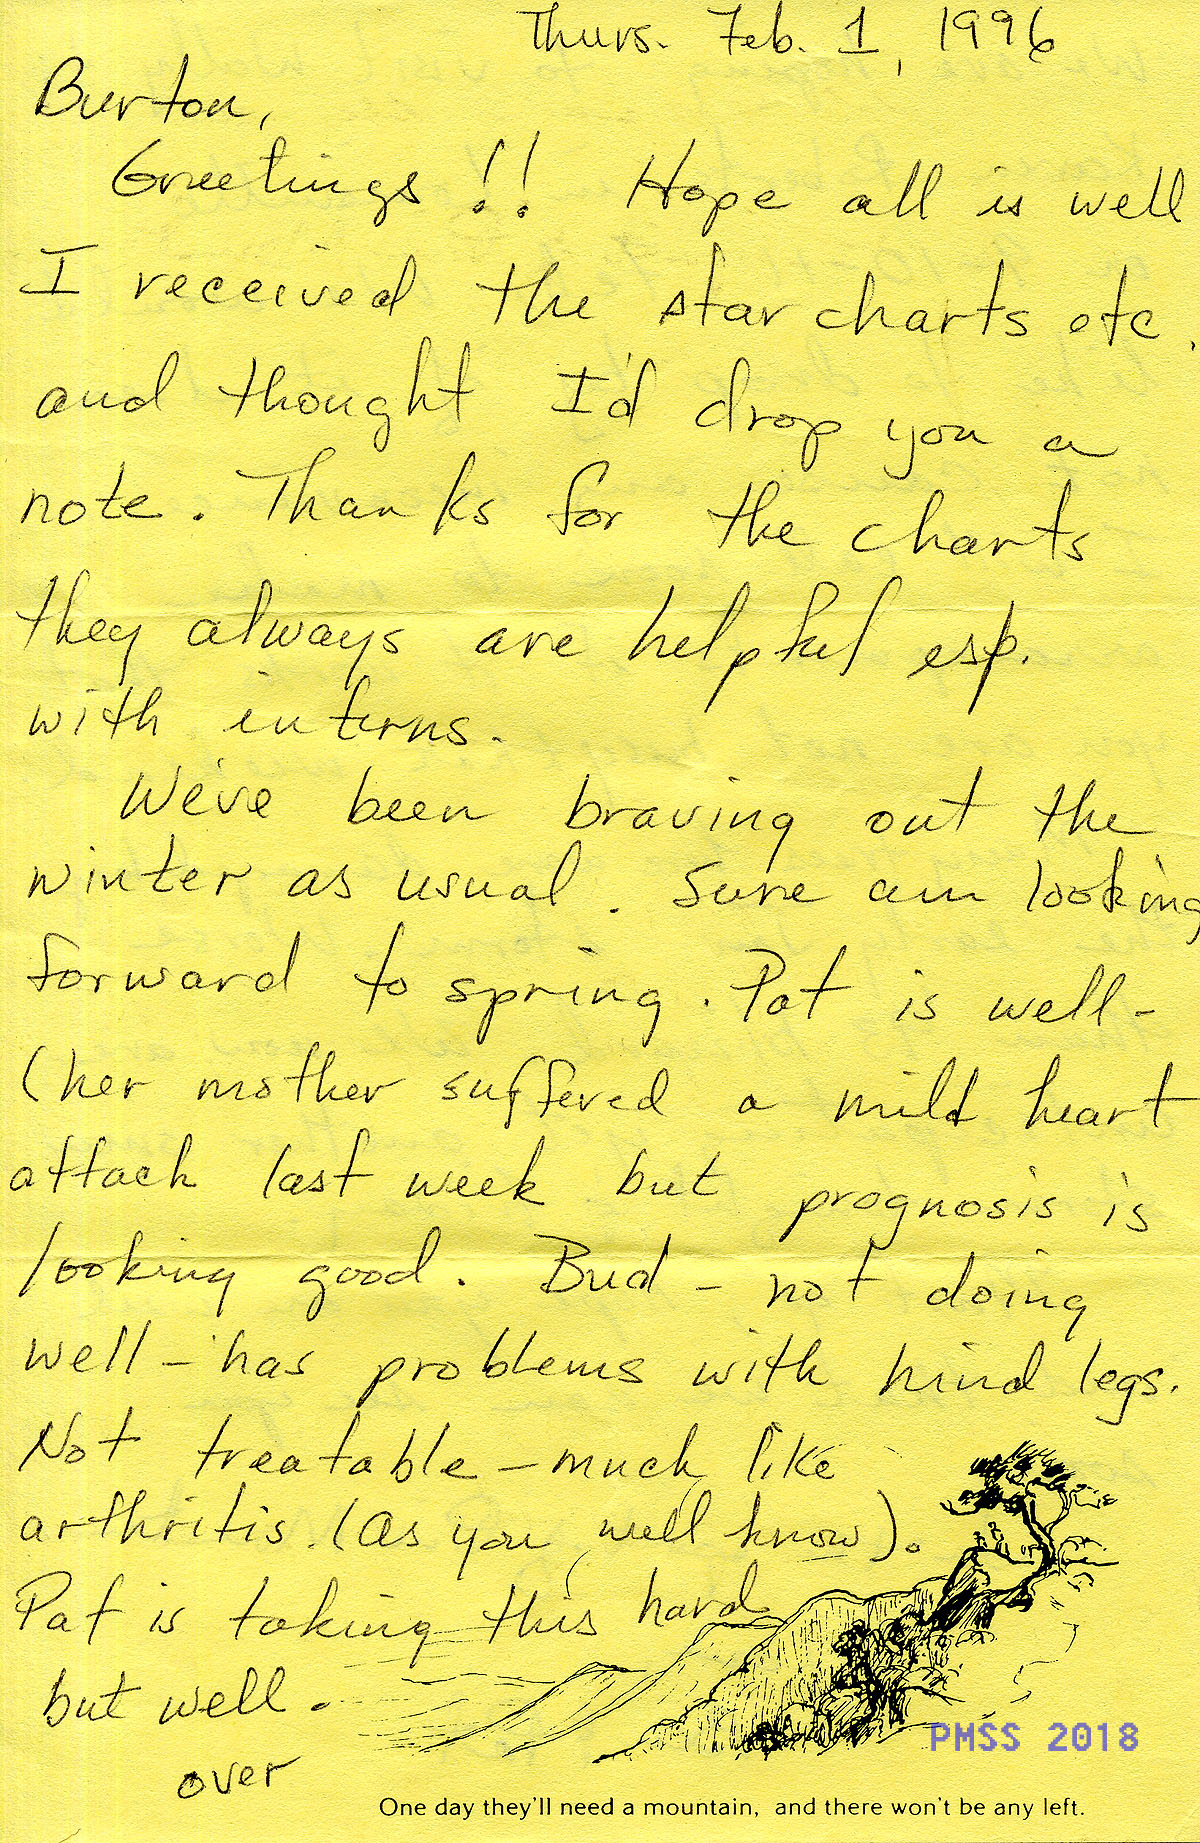 Thurs. Feb. 1, 1996
Burton,
Greetings!! Hope all is well
I received the star charts etc.
and thought I'd drop you a
note. Thanks for the charts
they always are helpful esp.
with interns.
We've been braving out the
winter as usual. Sure am looking
forward to spring. Pat is well-
(her mother suffered a mild heart
attack last week but prognosis is
looking good. Bud - not doing
well - has problems with hind legs.
Not treatable - much like
arthritis. (as you well know).
Pat is taking this hard
but well.
over
PMSS 2018
One day they'll need a mountain, and there won't be any left.